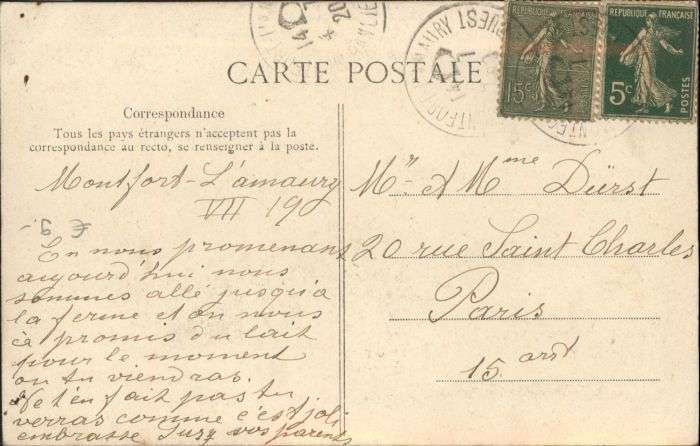 CARTE POSTALE
Correspondance
Tous les pays étrangers n'acceptent pas la
correspondance au recto, se renseigner à la poste.
REPUBLIQUE FRANÇAISE
15c
REPUBLIQUE FRANÇAISE
5c
POSTES
Montfort-L'amaury
VII 19
€ 9.-
En nous promenant
aujourd'hui nous
sommes allé jusqu'à
la ferme et on nous
à promis du lait
pour le moment
ou tu viendras.
t'en fait pas tu
verras comme c'est joli
embrasse vos parents
Mr & Mme Dürst
20 rue Saint Charles
Paris
15. arrt